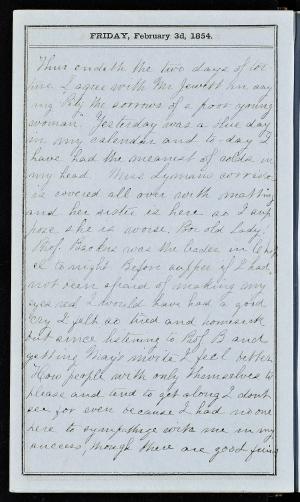 FRIDAY, February 3d, 1854.
Thus endeth the two days of tor-
ture. I agree with Mr Jewett in say
ing "Pity the sorrows of a poor young
woman" Yesterday was a blue day
in my calendar and to-day I
have had the meanest of colds in
my head. Miss Lymans corridor
is covered all over with matting
and her sister is here so I sup
pose she is worse. Poor old Lady!
Prof. Backus was the leader in Chap
el to night. Before supper if I had
not been afraid of making my
eyes red I would have had a good
cry I felt so tired and homesick
but since listening to Prof B and
getting May's note I feel better.
How people with only themselves to
please and tend to get along I dont
see for even because I had no one
here to sympathize with me in my
success, though there are good